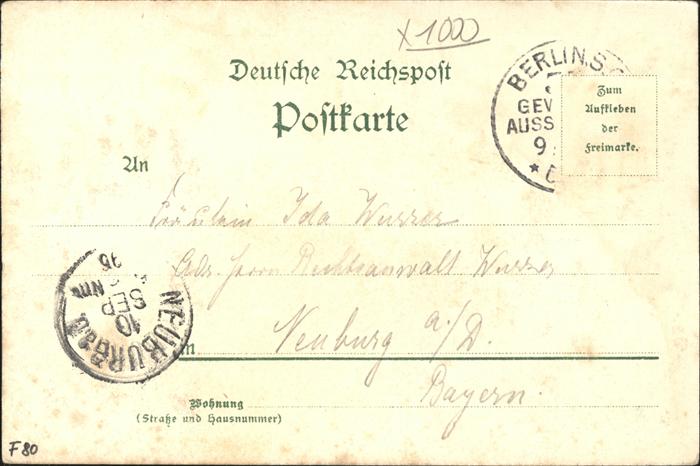 x 1000
Deutsche Reichspost
Postkarte
BERLIN.S.
GEW
AUSS
9
Zum
Aufkleben
der
Freimarke.
An
Fräulein Ida Wurzer
Adr. Herrn Rechtsanwalt Wurzer
Neuburg a./D.
in
Bayern.
NEUBURG a/D.
10
SEP
Nm
96
Wohnung
(Straße und Hausnummer)
F 80